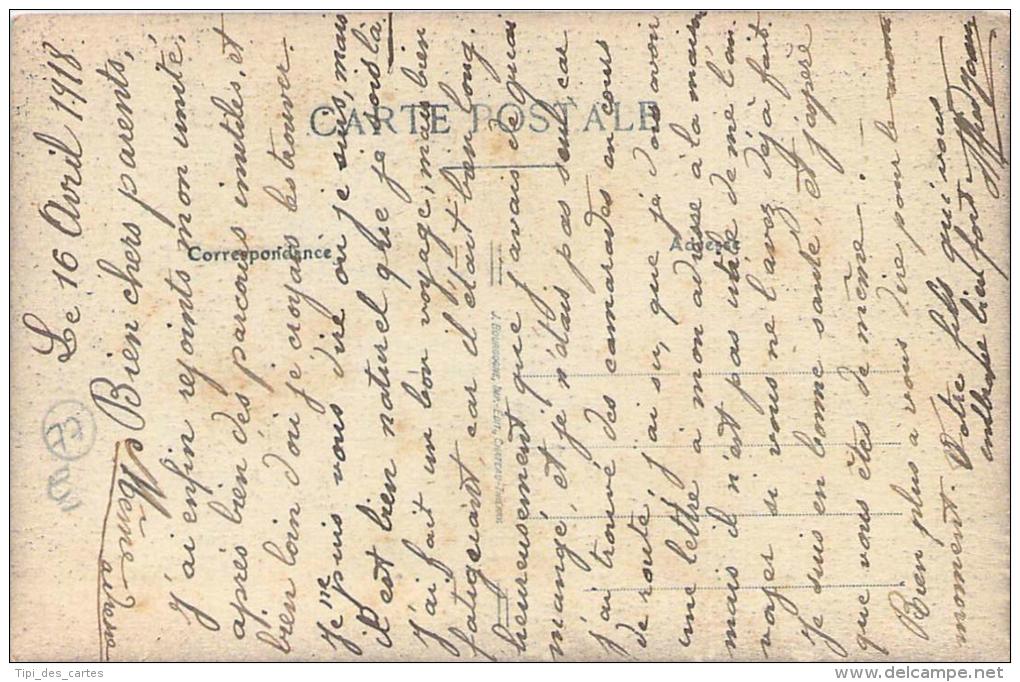 Le 16 Avril 1918
Bien chers parents,
J'ai enfin rejoints mon unité,
après bien des parcours inutiles, et
bien loin d'où je croyais les trouver.
Je ne puis vous dire où je suis, mais
il est bien naturel que je sois là.
J'ai fait un bon voyage, mais bien
fatiguant car il étant bien long.
heureusement que j'avais de quoi
mangé, et je n'étais pas seul car
j'ai trouvé des camarades en cours
de route, j'ai su, que je dois avoir
une lettre à mon adresse à la main
mais il n'est pas utile de me l'en
voyer si vous ne l'avez déjà fait.
Je suis en bonne santé, et j'espère
que vous êtes de même.
Bien plus à vous dire pour le
momment. Votre fils qui vous
embrasse bien fort
Alfred
Même adresse
CARTE POSTALE
Correspondance
Adresse
Tipi_des_cartes
www.delcampe.net